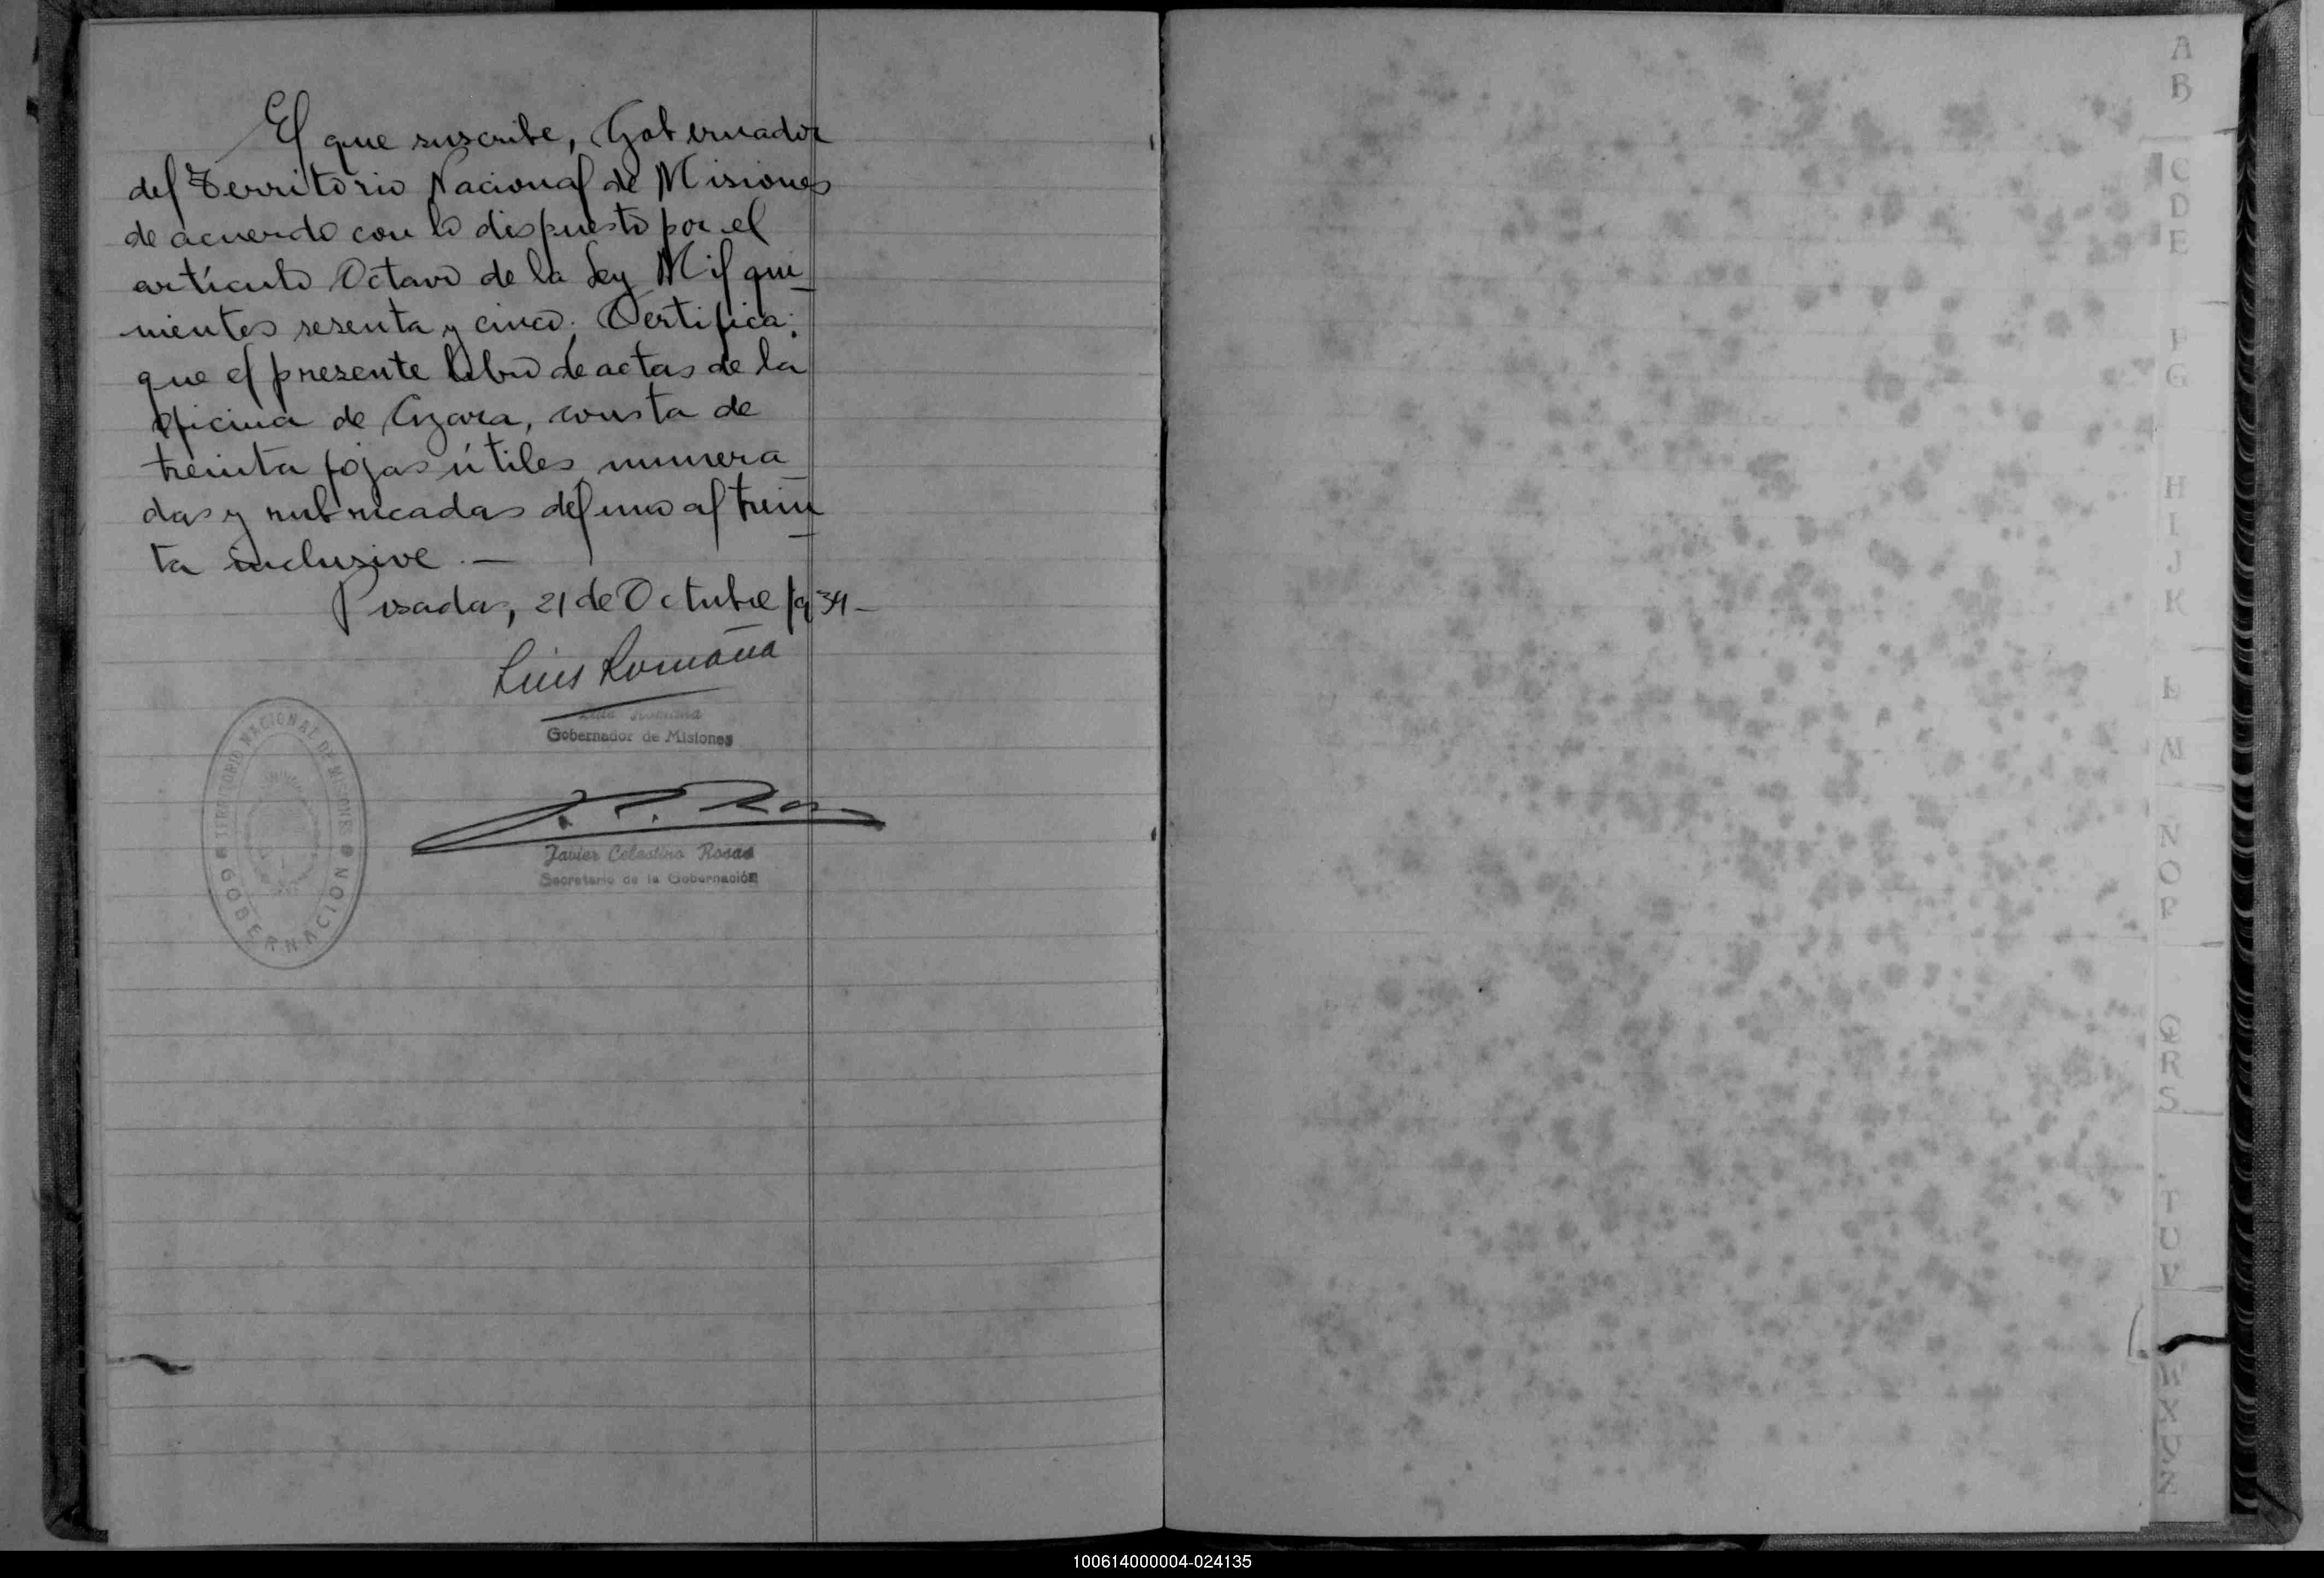 El que suscribe, Gobernador
del Territorio Nacional de Misiones
de acuerdo con lo dispuesto por el
artículo Octavo de la Ley Mil qui-
nientos sesenta y cinco; Certifica:
que el presente libro de actas de la
oficina de Azara, consta de
treinta fojas útiles numera
das y rubricadas del uno al trein-
ta inclusive.—
Posadas, 21 de Octubre 1934-
Luis Romaña
Luis Romaña
Gobernador de Misiones
TERRITORIO NACIONAL DE MISIONES
GOBERNACION
Javier Celestino Rosas
Secretario de la Gobernación
A
B
C
D
E
F
G
H
I
J
K
L
M
N
O
P
Q
R
S
T
U
V
W
X
Y
Z
100614000004-024135